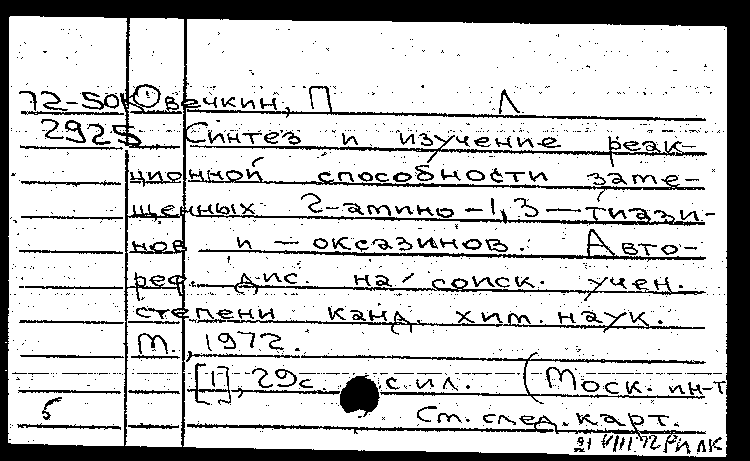 72-50К Овечкин, П Л
2925 Синтез и изучение реак-
ционной способности заме-
щенных 2-амино-1,3-тиази-
нов и -оксазинов. Авто-
реф. дис. на соиск. учен.
степени канд. хим. наук.
М., 1972.
[1], 29с. с ил. (Моск. ин-т
5 См. след. карт.
21 VIII 72 РИ ЛК